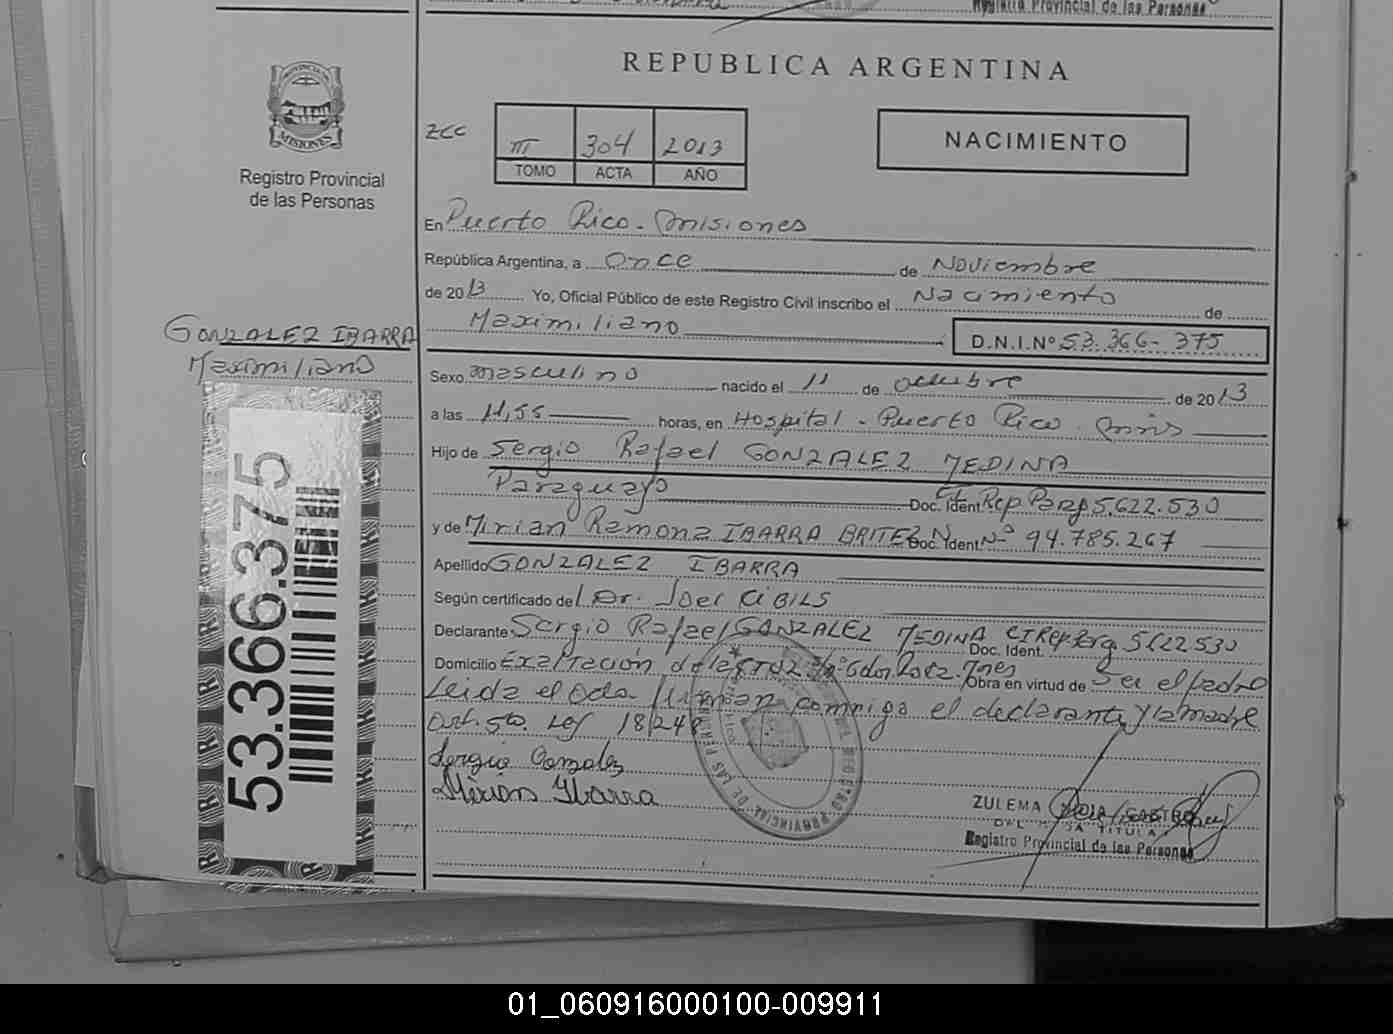 Registro Provincial de las Personas
REPUBLICA ARGENTINA
PROVINCIA DE
MISIONES
Registro Provincial
de las Personas
ZCC
III 304 2013
TOMO ACTA AÑO
NACIMIENTO
En Puerto Rico - Misiones
República Argentina, a Once de Noviembre
de 2013 Yo, Oficial Público de este Registro Civil inscribo el Nacimiento de
Maximiliano
D.N.I.Nº 53.366-375
GONZALEZ IBARRA
Maximiliano
Sexo masculino nacido el 11 de octubre de 2013
a las 11,55 horas, en Hospital - Puerto Rico - Mnes
Hijo de Sergio Rafael GONZALEZ MEDINA
Paraguayo Doc. Ident. CI Rep Parg 5.622.530
y de Mirian Ramona IBARRA BRITEZ Doc. Ident. Nº 94.785.267
Apellido GONZALEZ IBARRA
Según certificado del Dr. Joel CIBILS
Declarante Sergio Rafael GONZALEZ MEDINA Doc. Ident. CI Rep Parg 5622530
Domicilio Exaltación de la Cruz Obra en virtud de Ser el padre
Leida el Acta firman conmigo el declarante y la madre
Art. 5to. Ley 18248
Sergio Gonzalez
Mirian Ibarra
REGISTRO PROVINCIAL DE LAS PERSONAS
ZULEMA
TITULAR
Registro Provincial de las Personas
53.366.375
01_060916000100-009911